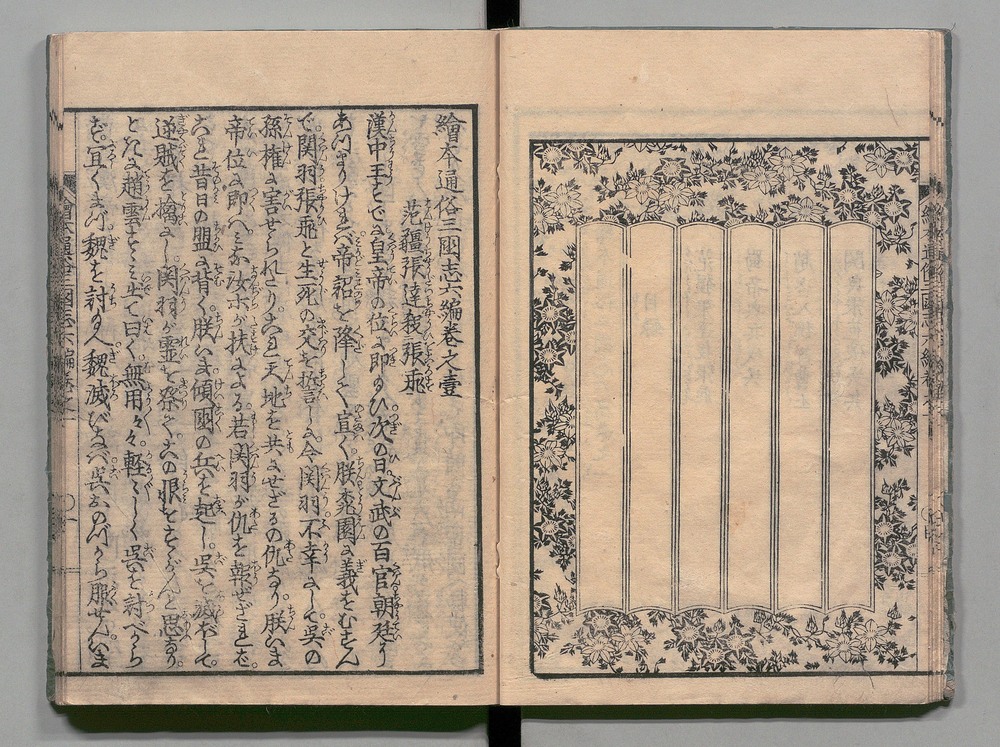 繪本通俗三國志六編巻之壹
范疆張達殺張飛
漢中王すでに皇帝の位に即給ひ次の日文武の百官朝廷に
あつまりければ帝詔を降して宣く朕桃園に義をむすん
で関羽張飛と生死の交を誓しに今関羽不幸にして呉の
孫権に害せられたりこれ天地を共にせざるの仇なり朕いま
帝位に即ことみな汝等が扶による若関羽が仇を報ぜざれば
これ昔日の盟に背く朕いま傾國の兵を起し呉を滅ぼして
逆賊を擒にし関羽が霊を祭てこの恨をすゝがんと思なり
とき趙雲すゝみ出て曰く無用々々軽々しく呉を討べから
ず宜くまづ魏を討給へ魏滅びなば呉おのづから服せんいま